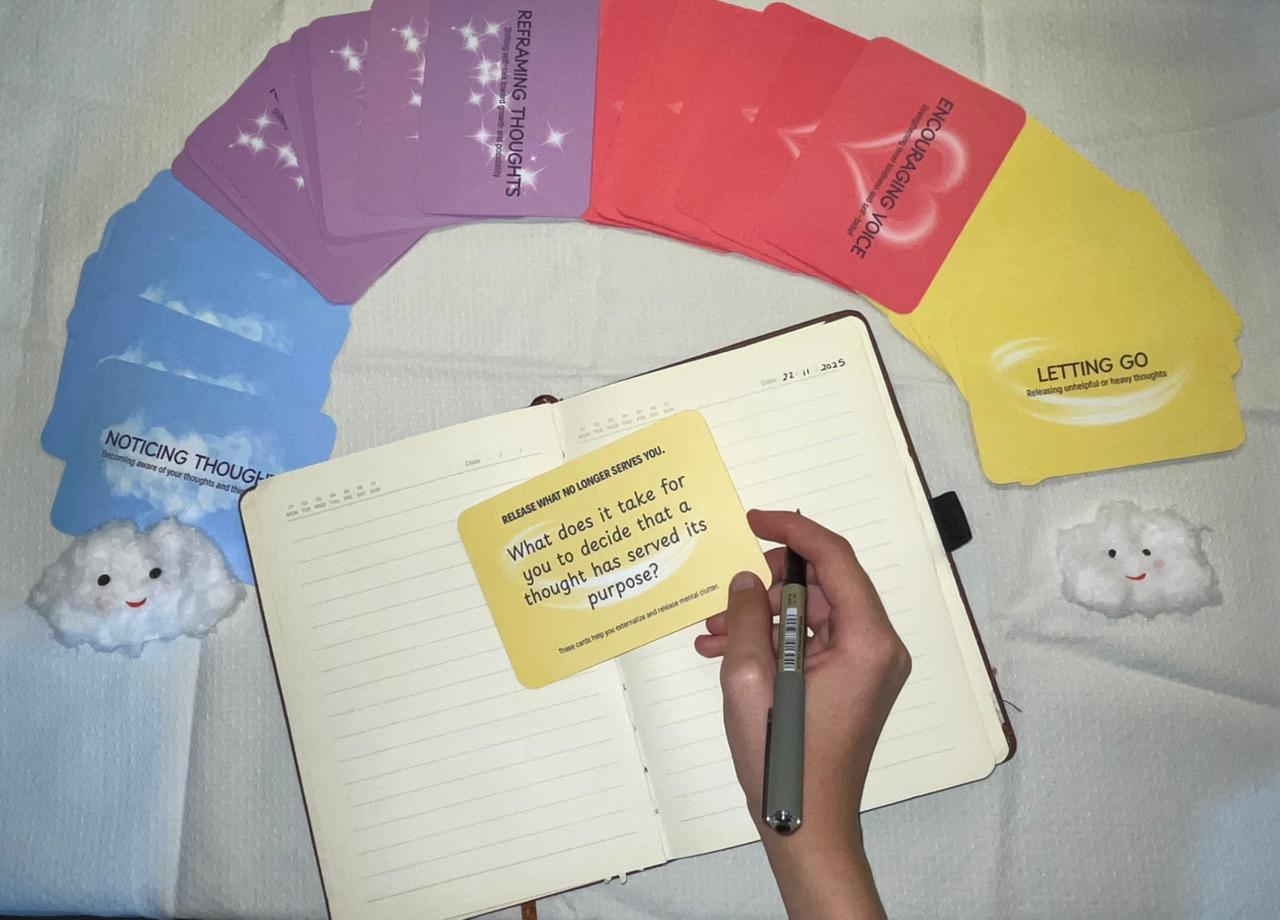 REFRAMING THOUGHTS
Shifting self-talk toward growth and possibility
ENCOURAGING VOICE
Strengthening inner kindness and self-belief
NOTICING THOUGHT
Becoming aware of your thoughts and
LETTING GO
Releasing unhelpful or heavy thoughts
Date
MON TUE WED THU FRI SAT SUN
Date: 22 11 2025
MON TUE WED THU FRI SAT SUN
RELEASE WHAT NO LONGER SERVES YOU.
What does it take for
you to decide that a
thought has served its
purpose?
These cards help you externalize and release mental clutter.